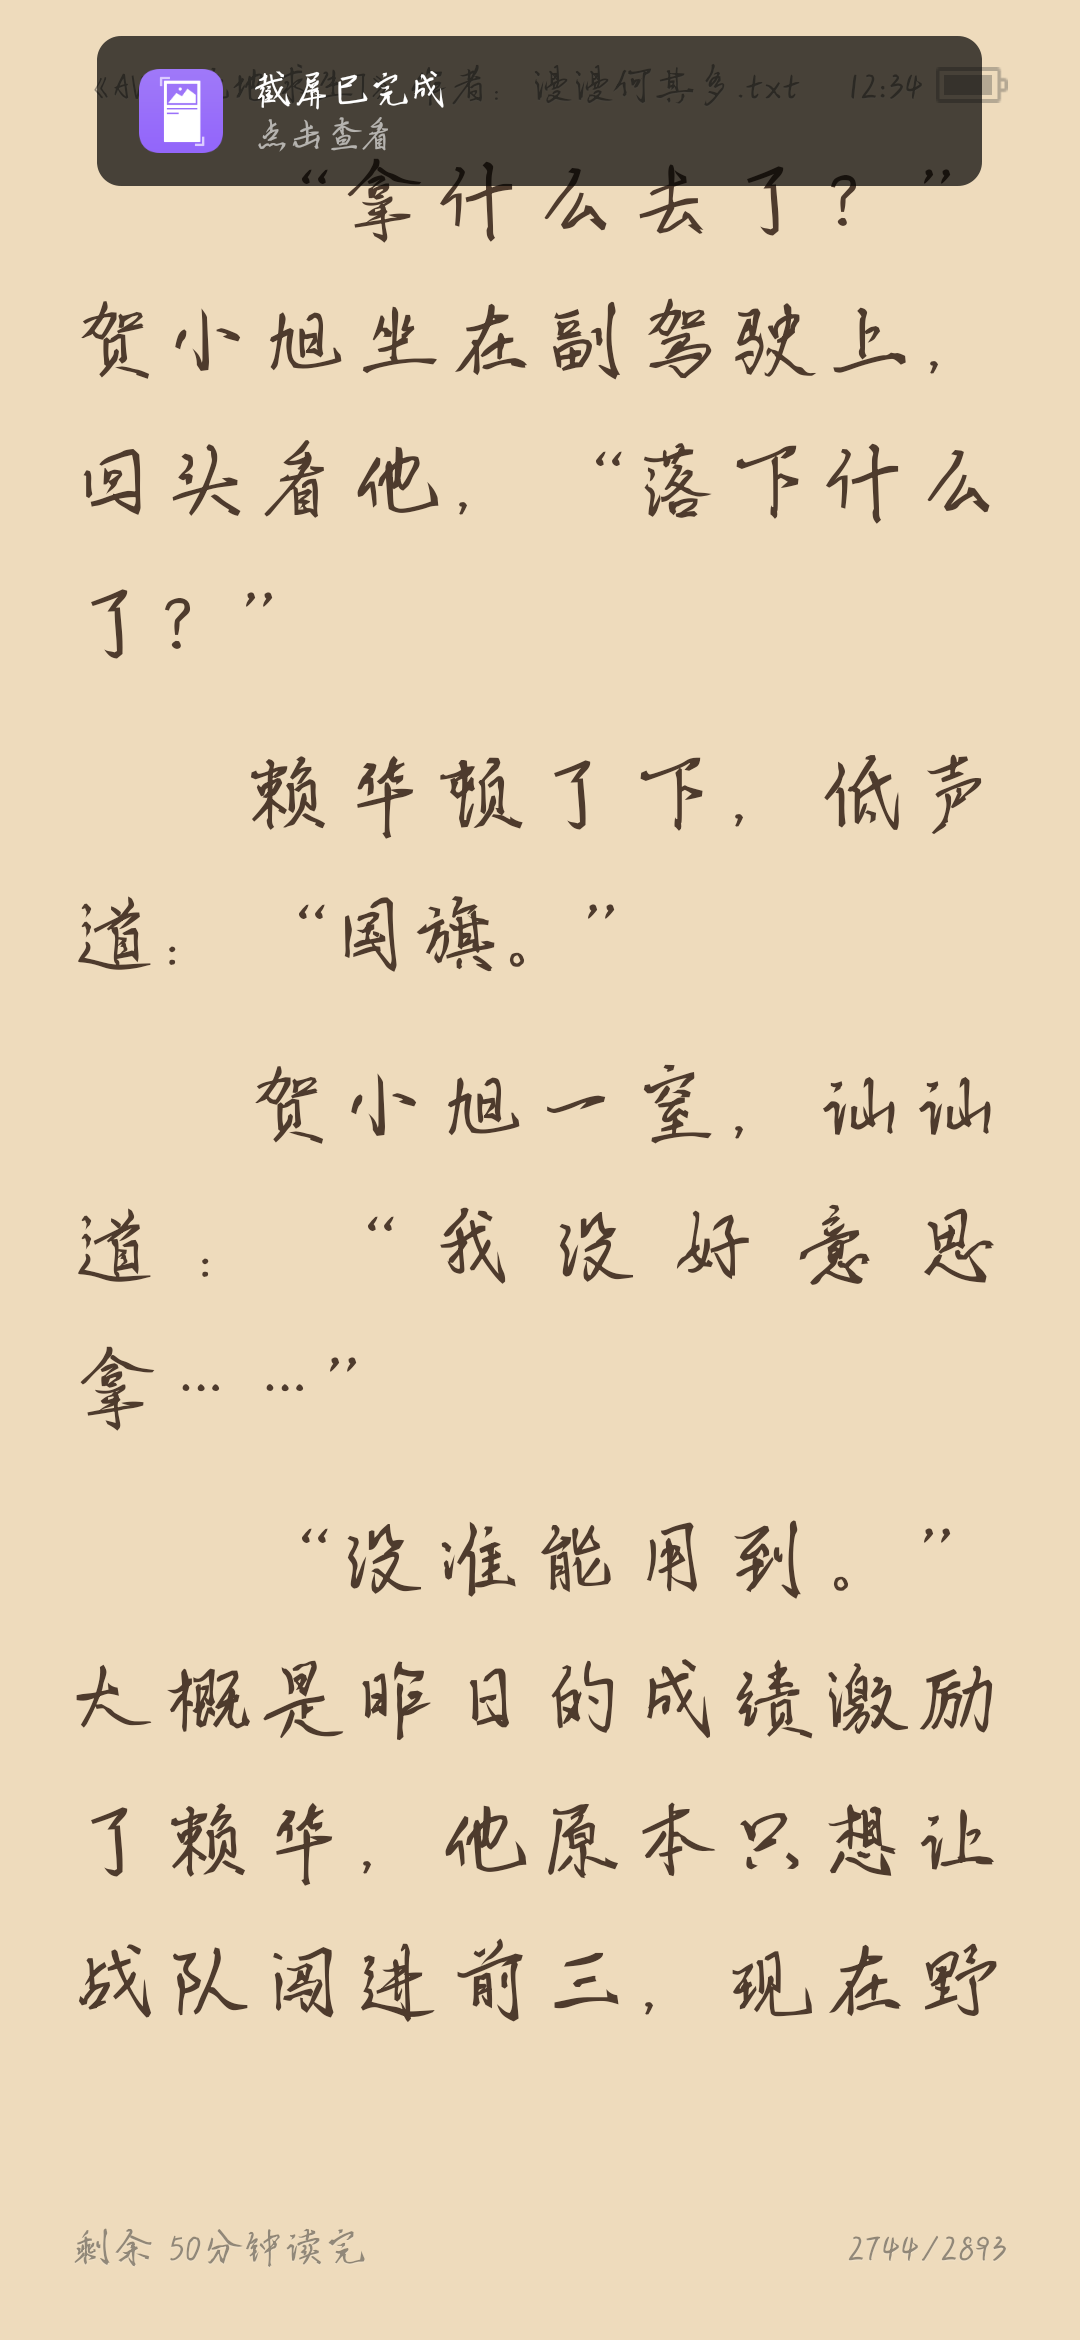 截屏已完成
点击查看
者： 漫漫何其多.txt 12:34
“拿什么去了？”
贺小旭坐在副驾驶上，
回头看他，“落下什么
了？”
赖华顿了下，低声
道：“国旗。”
贺小旭一窒，讪讪
道：“我没好意思
拿……”
“没准能用到。”
大概是昨日的成绩激励
了赖华，他原本只想让
战队闯进前三，现在野
剩余 50分钟读完
2744/2893